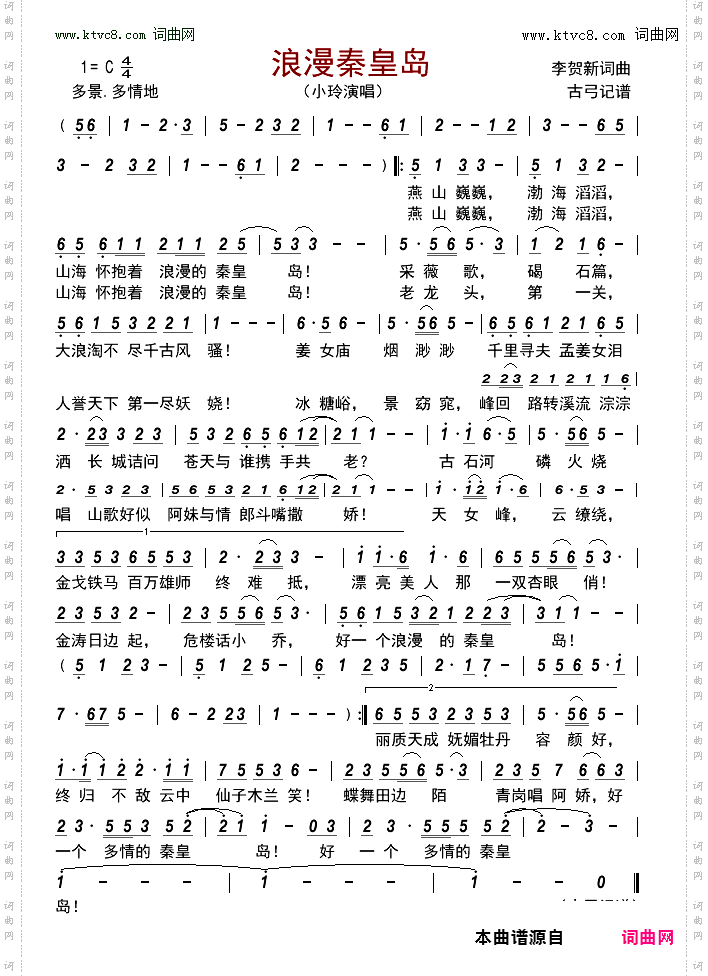 www.ktvc8.com 词曲网
www.ktvc8.com 词曲网
1= C 4/4
浪漫秦皇岛
李贺新词曲
多景.多情地
（小玲演唱）
古弓记谱
( 56 | 1 - 2·3 | 5 - 2 32 | 1 - - 61 | 2 - - 12 | 3 - - 65 |
3 - 2 32 | 1 - - 61 | 2 - - - ) ‖: 5 1 33 - | 5 1 32 - |
燕 山 巍巍， 渤 海 滔滔，
燕 山 巍巍， 渤 海 滔滔，
65 611 211 25 | 533 - - | 5·56 5·3 | 12 16 - |
山海 怀抱着 浪漫的 秦皇 岛！ 采 薇 歌， 碣 石篇，
山海 怀抱着 浪漫的 秦皇 岛！ 老 龙 头， 第 一关，
56 15 32 21 | 1 - - - | 6·56 2 - | 5·56 5 - | 65 61 23 21 |
大浪淘不 尽千古风 骚！ 姜 女庙 烟 渺渺 千里寻夫 孟姜女泪
2 23 2 1 2 1 1 6 |
人誉天下 第一尽妖 娆！ 冰 糖峪， 景 窈 窕， 峰回 路转溪流 淙淙
2·23 3 23 | 53 2 65 612 | 211 - - | 1·1 6·5 | 5·56 5 - |
洒 长 城诘问 苍天与 谁携 手共 老？ 古 石河 磷 火 烧
2·5 3 23 | 56 53 21 612 | 211 - - | 1·12 1·6 | 6·53 5 - |
唱 山歌好似 阿妹与情 郎斗嘴撒 娇！ 天 女 峰， 云 缭绕，
1
33 53 65 53 | 2·23 3 - | 11·6 1·6 | 65 556 53· |
金戈铁马 百万雄师 终 难 抵， 漂 亮 美 人 那 一双杏眼 俏！
23 53 2 - | 23 556 53· | 561 5321 22 23 | 311 - - |
金涛日边 起， 危楼话小 乔， 好一 个浪漫 的 秦皇 岛！
( 5 1 23 - | 5 1 25 - | 6 1 235 | 2·1 7 - | 556 5·1 |
7·67 5 - | 6 - 2 23 | 1 - - - ) :‖ 65 53 23 53 | 5·56 5 - |
2
丽质天成 妩媚牡丹 容 颜 好，
1·1 12 2·11 | 75 53 2 - | 23 556 53· | 23 57 663 |
终 归 不 敌 云中 仙子木兰 笑！ 蝶舞田边 陌 青岗唱 阿娇，好
23·555 52 | 21 1 - 03 | 23·555 52 | 2 - 3 - |
一个 多情的 秦皇 岛！ 好 一 个 多情的 秦皇
1 - - - | 1 - - - | 1 - - 0 ‖
岛！
本曲谱源自 词曲网